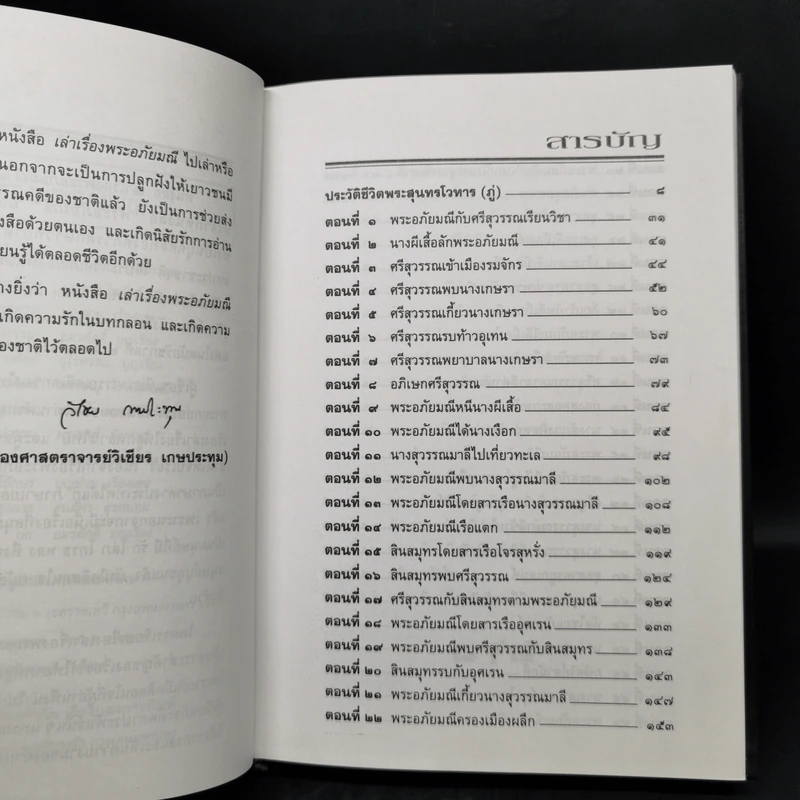 หนังสือ เล่าเรื่องพระอภัยมณี ไปเล่าหรือ
นอกจากจะเป็นการปลูกฝังให้เยาวชนมี
รรณคดีของชาติแล้ว ยังเป็นการช่วยส่ง
งสือด้วยตนเอง และเกิดนิสัยรักการอ่าน
ยนรู้ได้ตลอดชีวิตอีกด้วย
างยิ่งว่า หนังสือ เล่าเรื่องพระอภัยมณี
เกิดความรักในบทกลอน และเกิดความ
องชาติไว้ตลอดไป
องศาสตราจารย์วิเชียร เกษประทุม)
สารบัญ
ประวัติชีวิตพระสุนทรโวหาร (ภู่) ๘
ตอนที่ ๑ พระอภัยมณีกับศรีสุวรรณเรียนวิชา ๓๑
ตอนที่ ๒ นางผีเสื้อลักพระอภัยมณี ๔๑
ตอนที่ ๓ ศรีสุวรรณเข้าเมืองรมจักร ๔๔
ตอนที่ ๔ ศรีสุวรรณพบนางเกษรา ๕๒
ตอนที่ ๕ ศรีสุวรรณเกี้ยวนางเกษรา ๖๐
ตอนที่ ๖ ศรีสุวรรณรบท้าวอุเทน ๖๗
ตอนที่ ๗ ศรีสุวรรณพยาบาลนางเกษรา ๗๓
ตอนที่ ๘ อภิเษกศรีสุวรรณ ๗๙
ตอนที่ ๙ พระอภัยมณีหนีนางผีเสื้อ ๘๔
ตอนที่ ๑๐ พระอภัยมณีได้นางเงือก ๙๕
ตอนที่ ๑๑ นางสุวรรณมาลีไปเที่ยวทะเล ๙๘
ตอนที่ ๑๒ พระอภัยมณีพบนางสุวรรณมาลี ๑๐๒
ตอนที่ ๑๓ พระอภัยมณีโดยสารเรือนางสุวรรณมาลี ๑๐๘
ตอนที่ ๑๔ พระอภัยมณีเรือแตก ๑๑๒
ตอนที่ ๑๕ สินสมุทรโดยสารเรือโจรสุหรั่ง ๑๑๙
ตอนที่ ๑๖ สินสมุทรพบศรีสุวรรณ ๑๒๔
ตอนที่ ๑๗ ศรีสุวรรณกับสินสมุทรตามพระอภัยมณี ๑๒๙
ตอนที่ ๑๘ พระอภัยมณีโดยสารเรืออุศเรน ๑๓๓
ตอนที่ ๑๙ พระอภัยมณีพบศรีสุวรรณกับสินสมุทร ๑๓๘
ตอนที่ ๒๐ สินสมุทรรบกับอุศเรน ๑๔๓
ตอนที่ ๒๑ พระอภัยมณีเกี้ยวนางสุวรรณมาลี ๑๔๗
ตอนที่ ๒๒ พระอภัยมณีครองเมืองผลึก ๑๕๓